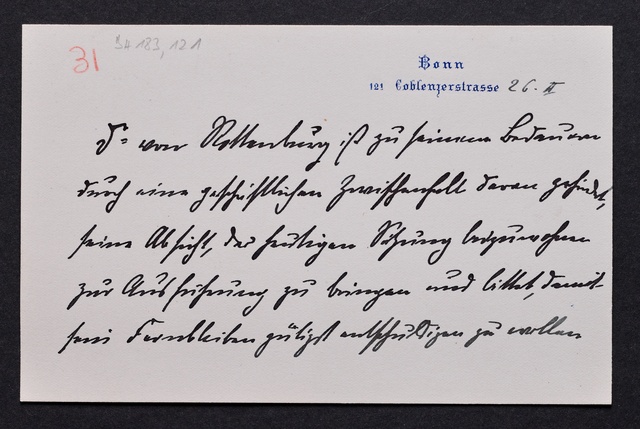 31
S4 183, 121
Bonn
121 Coblenzerstrasse 26. II
Dr von Rottenburg ist zu seinem Bedauern
durch eine geschäftlichen Zwischenfall daran gehindert,
seine Absicht, der heutigen Sitzung beizuwohnen
zur Ausführung zu bringen und bittet, damit
sein Fernbleiben gütigst entschuldigen zu wollen